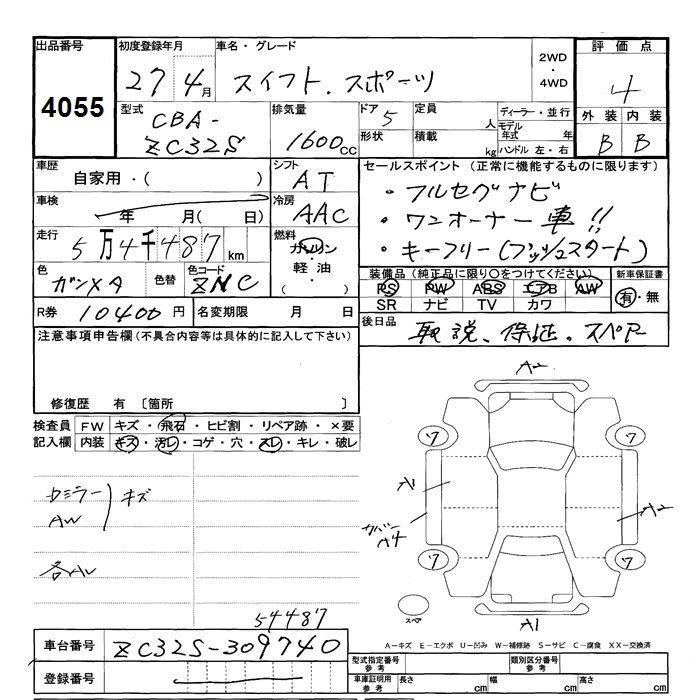 出品番号 初度登録年月 車名・グレード 2WD・4WD 評価点
4055 27 4月 スイフト.スポーツ 4
型式 排気量 ドア 定員 ディーラー・並行 外装 内装
CBA-ZC32S 1600cc 5 人 モデル年式 年 B B
形状 積載 kg ハンドル 左・右
車歴 シフト セールスポイント (正常に機能するものに限ります)
自家用・( ) AT ・フルセグナビ
車検 冷房 ・ワンオーナー車!!
年 月(日) AAC ・キーフリー(プッシュスタート)
走行 5万4千487km 燃料 ガソリン・軽油・( )
色 ガンメタ 色替 色コード ZNC
装備品 (純正品に限り〇をつけてください) 新車保証書
PS PW ABS エアB AW 有・無
SR ナビ TV カワ
R券 10400円 名変期限 月 日 後日品 取説、保証.スペアー
注意事項申告欄(不具合内容等は具体的に記入して下さい)
修復歴 有 [箇所 ]
検査員 FW キズ・飛石・ヒビ割・リペア跡・×要
記入欄 内装 キズ・汚レ・コゲ・穴・スレ・キレ・破レ
A2
7 7
A1 A2
A4
7 7
スペア A1
ミラー キズ
AW
各AL
54487
車台番号 ZC32S-309740
登録番号
A-キズ E-エクボ U-凹み W-補修跡 S-サビ C-腐食 XX-交換済
型式指定番号 参考 類別区分番号 参考
車庫証明用 参考 長さ cm 幅 cm 高さ cm